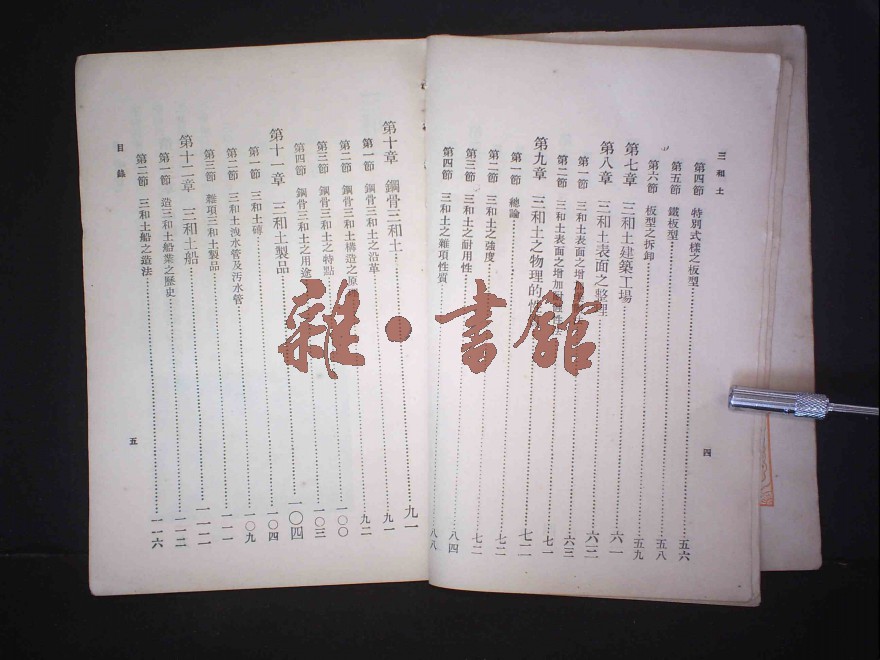 三和土
第四節 特別式樣之板型 五六
第五節 鐵板型 五八
第六節 板型之拆卸 五九
第七章 三和土建築工場 六一
第八章 三和土表面之整理 六二
第一節 三和土表面之增
第二節 三和土表面之增加 七一
第九章 三和土之物理的性 七二
第一節 總論 七二
第二節 三和土之強度 七二
第三節 三和土之耐用性 八四
第四節 三和土之雜項性質 八八
四
第十章 鋼骨三和土 九一
第一節 鋼骨三和土之沿革 九一
第二節 鋼骨三和土構造之原 九二
第三節 鋼骨三和土之特點 一〇〇
第四節 鋼骨三和土之用途 一〇三
第十一章 三和土製品 一〇四
第一節 三和土磚 一〇四
第二節 三和土洩水管及汚水管 一〇九
第三節 雜項三和土製品 一一一
第十二章 三和土船 一一二
第一節 造三和土船業之歷史 一一二
第二節 三和土船之造法 一一六
目錄
五
雜·書館